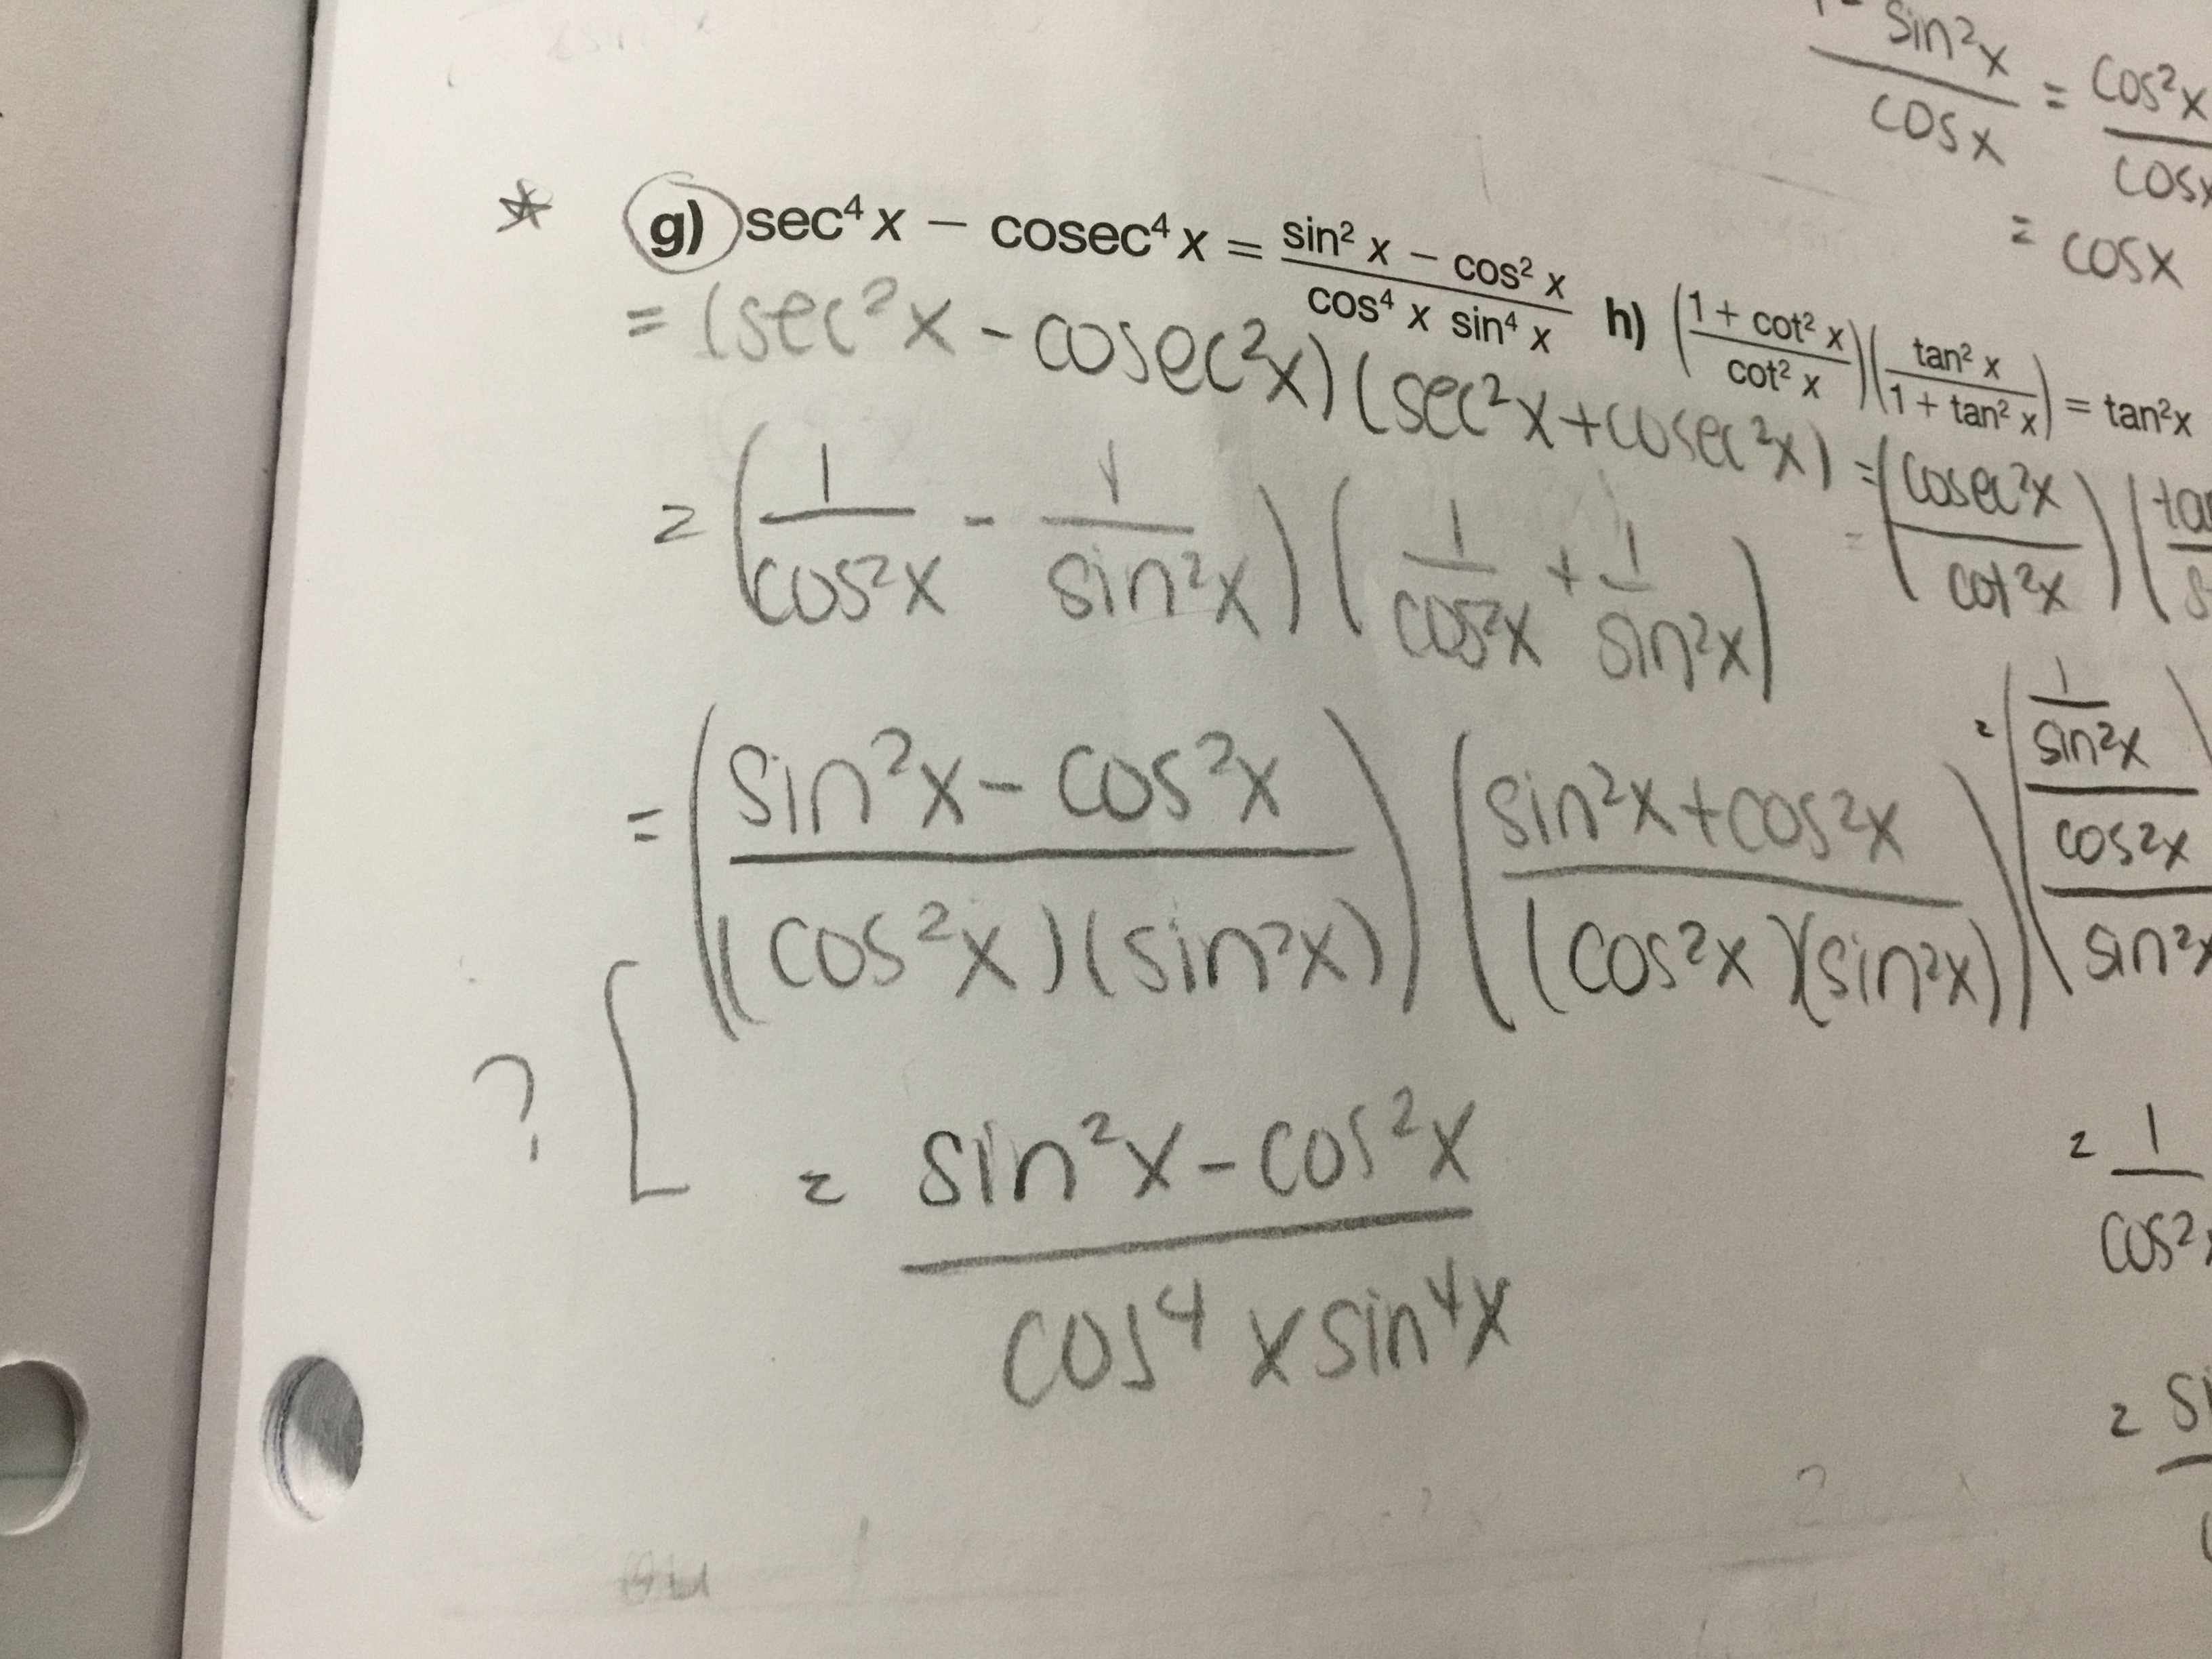 sin²x / cos x = cos²x / cosx
= cosx
* g) sec⁴ x − cosec⁴ x = (sin² x − cos² x) / (cos⁴ x sin⁴ x)
= (sec²x - cosec²x)(sec²x+cosec²x)
= (1/cos²x - 1/sin²x)(1/cos²x + 1/sin²x)
= (sin²x - cos²x / (cos²x)(sin²x)) (sin²x+cos²x / (cos²x)(sin²x))
? [ = sin²x - cos²x / cos⁴ x sin⁴x
h) ((1 + cot² x) / cot² x)(tan² x / (1 + tan² x)) = tan²x
= (cosec²x / cot²x) (
= (1/sin²x / cos²x/sin²x
= 1 / cos²
=